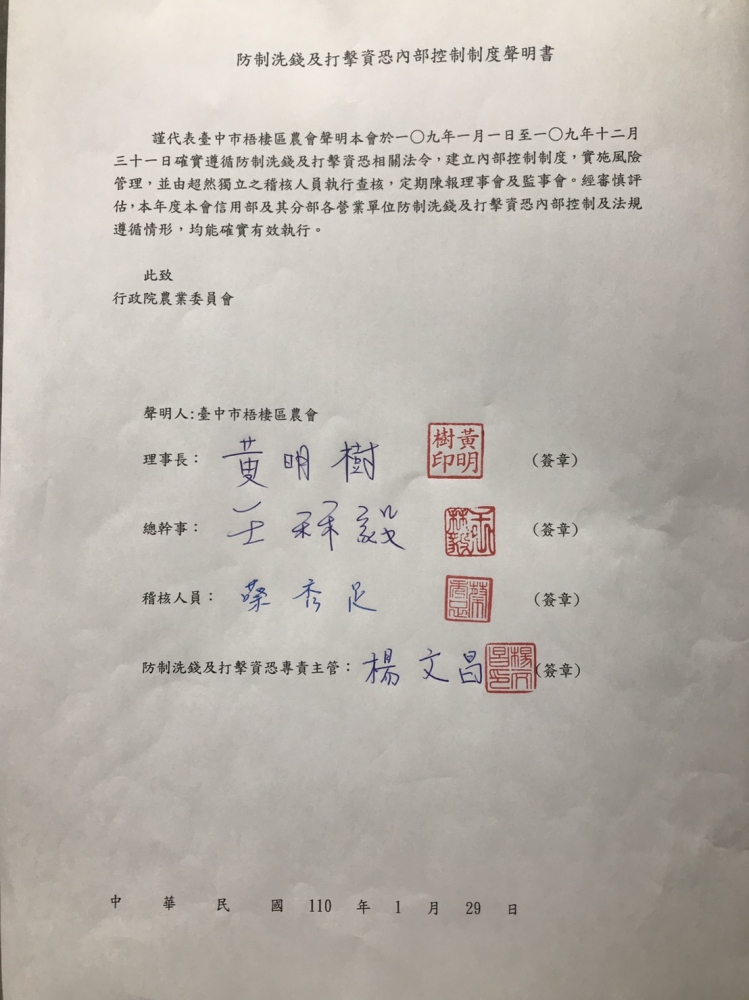 防制洗錢及打擊資恐內部控制制度聲明書
謹代表臺中市梧棲區農會聲明本會於一〇九年一月一日至一〇九年十二月
三十一日確實遵循防制洗錢及打擊資恐相關法令，建立內部控制制度，實施風險
管理，並由超然獨立之稽核人員執行查核，定期陳報理事會及監事會。經審慎評
估，本年度本會信用部及其分部各營業單位防制洗錢及打擊資恐內部控制及法規
遵循情形，均能確實有效執行。
此致
行政院農業委員會
聲明人:臺中市梧棲區農會
理事長： 黃明樹 黃明樹印 (簽章)
總幹事： 王 毅 (簽章)
稽核人員： 蔡秀足 (簽章)
防制洗錢及打擊資恐專責主管： 楊文昌 楊文昌印 (簽章)
中華民國 110 年 1 月 29 日